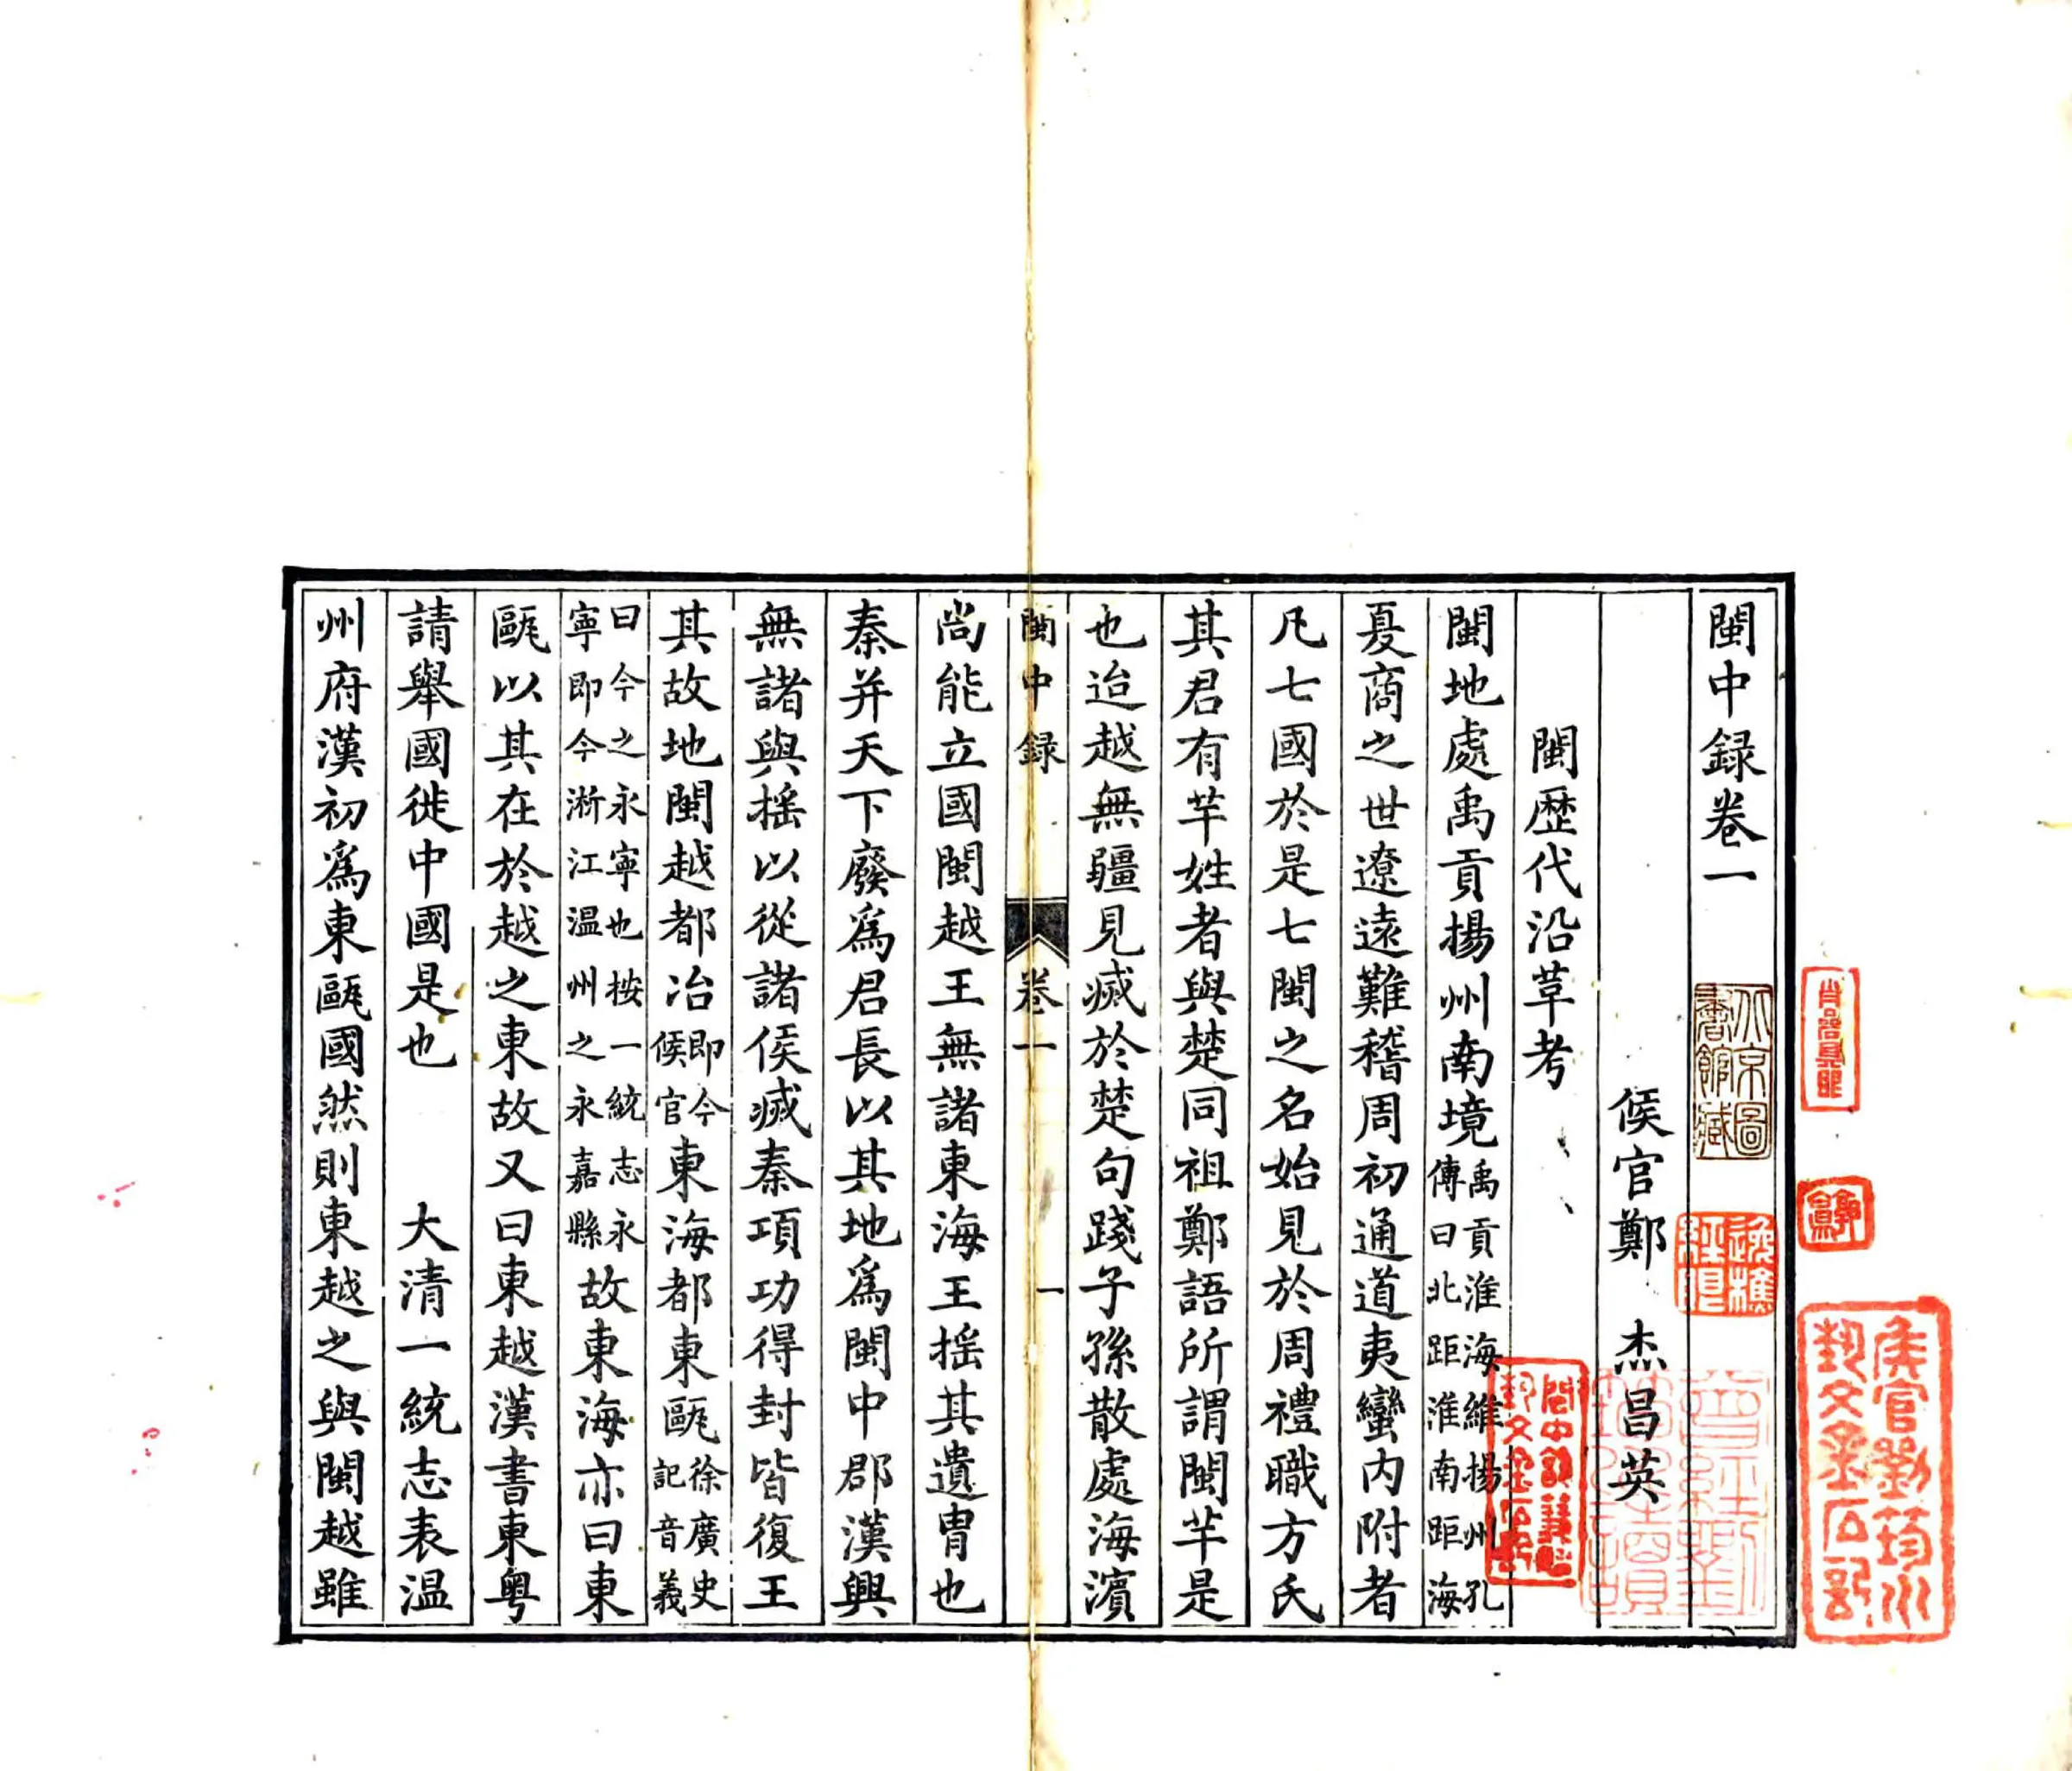 閩中録卷一
侯官鄭 杰昌英
閩歷代沿革考
閩地處禹貢揚州南境禹貢淮海維揚州孔傳曰北距淮南距海
夏商之世遼遠難稽周初通道夷蠻内附者
凡七國於是七閩之名始見於周禮職方氏
其君有芊姓者與楚同祖鄭語所謂閩芊是
也迨越無疆見滅於楚句踐子孫散處海濱
閩中録 卷一 一
尚能立國閩越王無諸東海王揺其遺胄也
秦并天下廢爲君長以其地爲閩中郡漢興
無諸與揺以從諸侯滅秦項功得封皆復王
其故地閩越都冶即今侯官東海都東甌徐廣史記音義
曰今之永寧也按一統志永寧即今淅江温州之永嘉縣故東海亦曰東
甌以其在於越之東故又曰東越漢書東粤
請舉國徙中國是也 大清一統志表温
州府漢初爲東甌國然則東越之與閩越雖
北京圖書館藏
侯官劉筠川藝文金石記